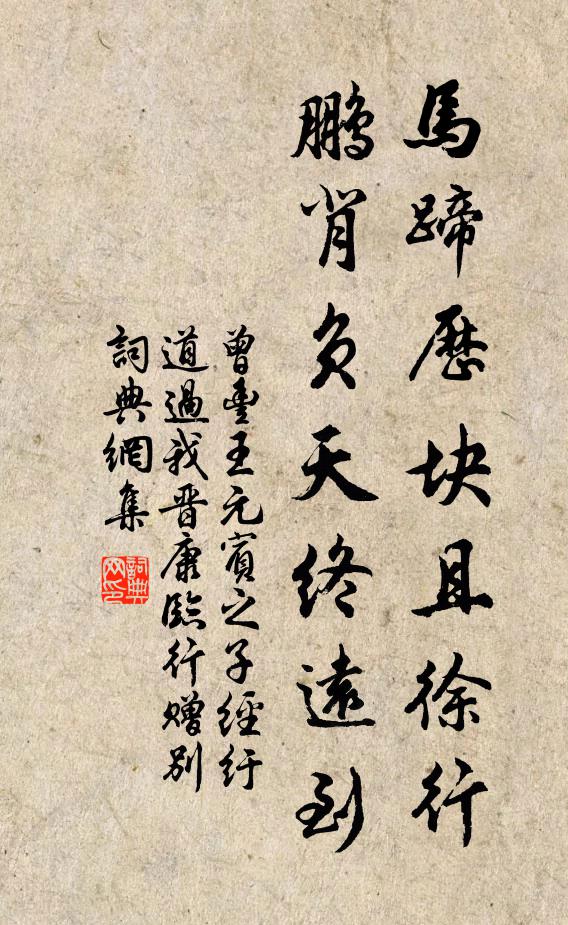 馬蹄歷块且徐行
鵬背负天终遠到
曾豊王元賓之子經紆
道過我晋康臨行赠别
詞典網集
詞典网印